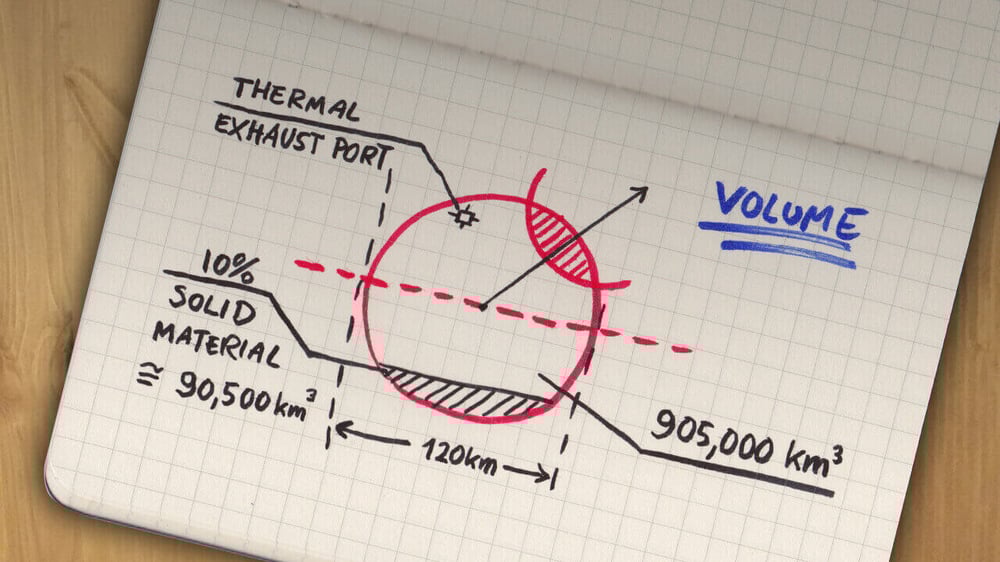 THERMAL
EXHAUST PORT
VOLUME
10%
SOLID
MATERIAL
≅ 90,500 km³
120km
905,000 km³